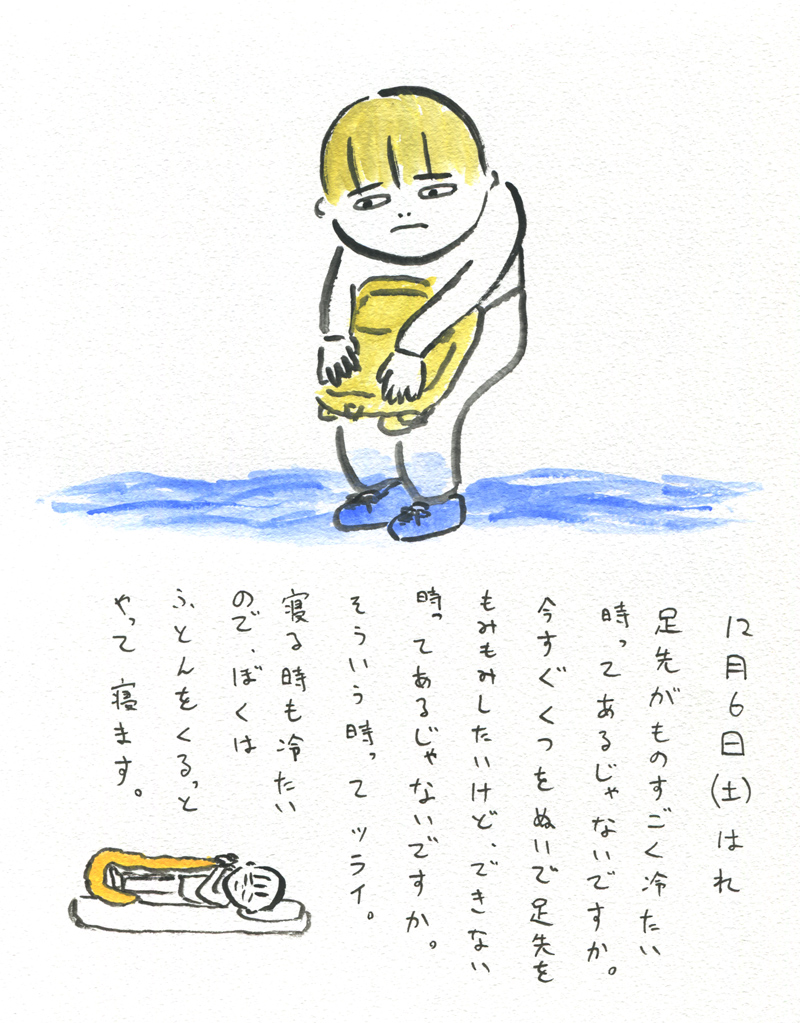 12月6日(土)はれ
足先がものすごく冷たい
時ってあるじゃないですか。
今すぐくつをぬいで足先を
もみもみしたいけど、できない
時ってあるじゃないですか。
そういう時ってツライ。
寝る時も冷たい
ので、ぼくは
ふとんをくるっと
やって寝ます。